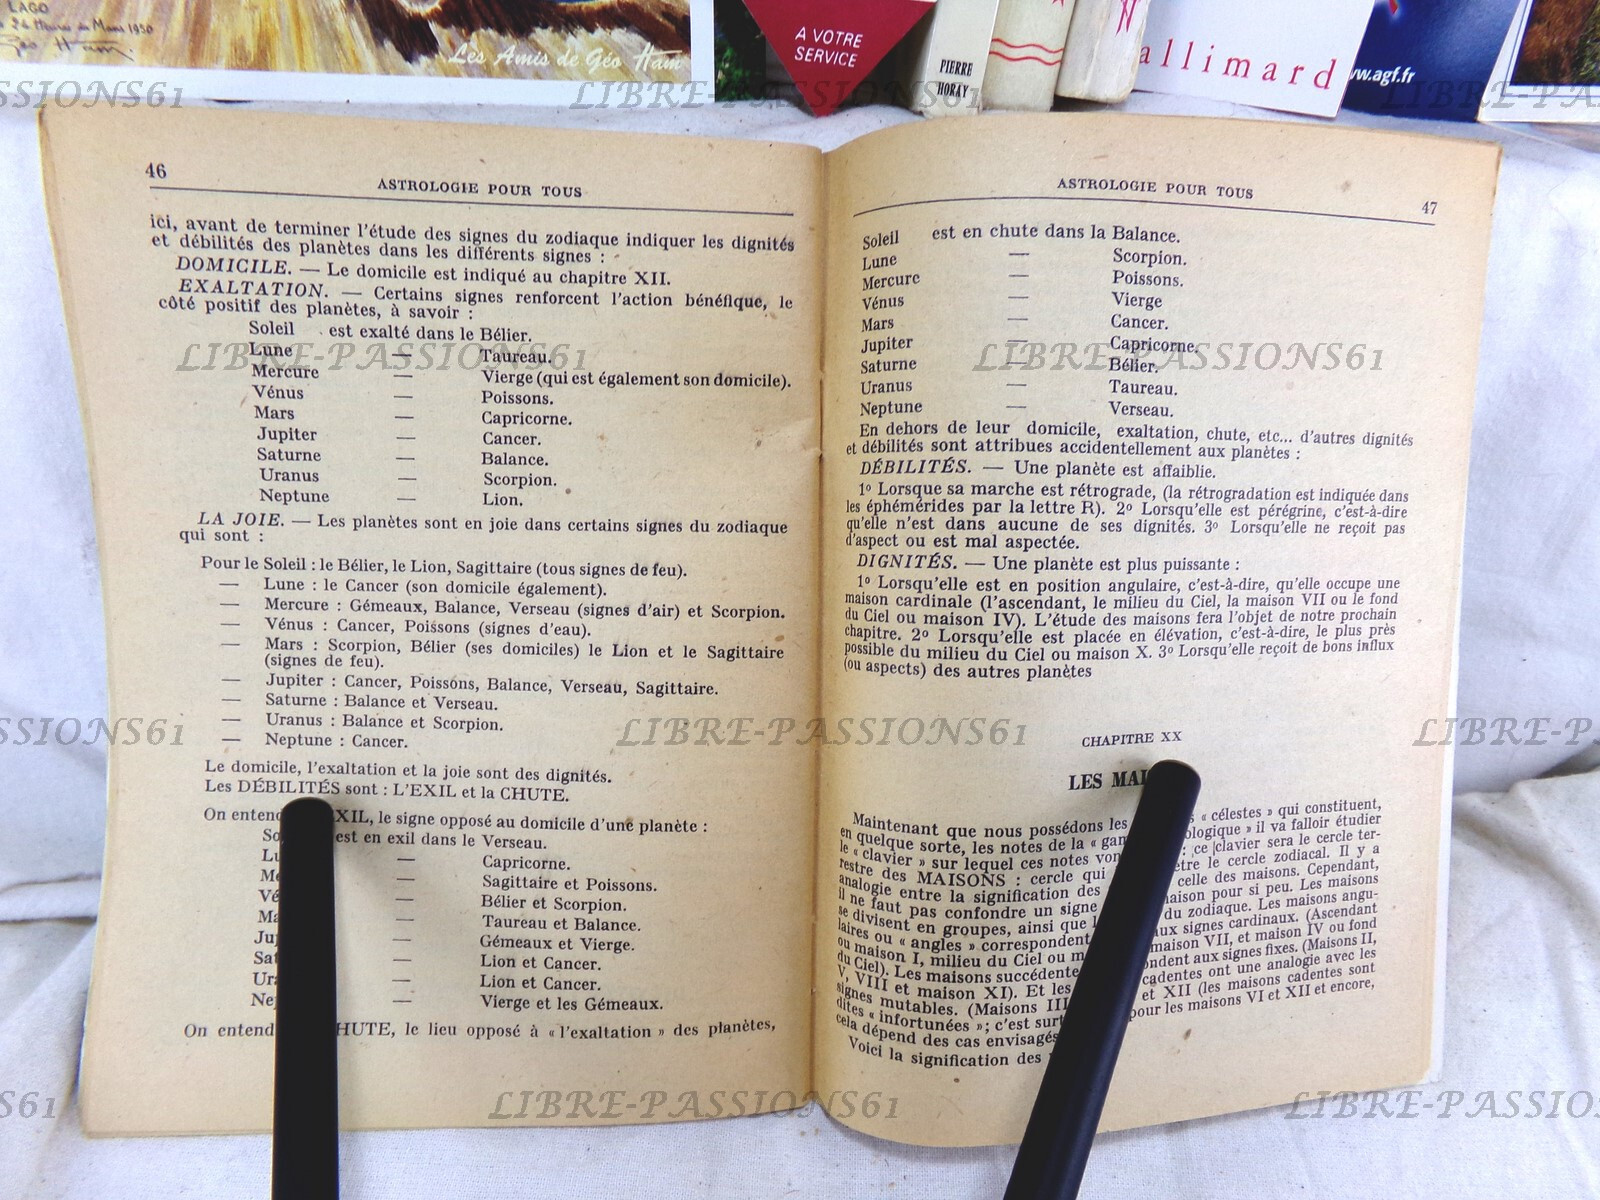 LAGO
24 Heures du Mans 1950
Géo Ham.
Les Amis de Géo Ham
A VOTRE
SERVICE
PIERRE
HORAY
N
allimard
www.agf.fr
46
ASTROLOGIE POUR TOUS
ici, avant de terminer l'étude des signes du zodiaque indiquer les dignités
et débilités des planètes dans les différents signes :
DOMICILE. — Le domicile est indiqué au chapitre XII.
EXALTATION. — Certains signes renforcent l'action bénéfique, le
côté positif des planètes, à savoir :
Soleil est exalté dans le Bélier.
Lune — Taureau.
Mercure — Vierge (qui est également son domicile).
Vénus — Poissons.
Mars — Capricorne.
Jupiter — Cancer.
Saturne — Balance.
Uranus — Scorpion.
Neptune — Lion.
LA JOIE. — Les planètes sont en joie dans certains signes du zodiaque
qui sont :
Pour le Soleil : le Bélier, le Lion, Sagittaire (tous signes de feu).
— Lune : le Cancer (son domicile également).
— Mercure : Gémeaux, Balance, Verseau (signes d'air) et Scorpion.
— Vénus : Cancer, Poissons (signes d'eau).
— Mars : Scorpion, Bélier (ses domiciles) le Lion et le Sagittaire
(signes de feu).
— Jupiter : Cancer, Poissons, Balance, Verseau, Sagittaire.
— Saturne : Balance et Verseau.
— Uranus : Balance et Scorpion.
— Neptune : Cancer.
Le domicile, l'exaltation et la joie sont des dignités.
Les DÉBILITÉS sont : L'EXIL et la CHUTE.
On entend XIL, le signe opposé au domicile d'une planète :
So est en exil dans le Verseau.
Lu — Capricorne.
Me — Sagittaire et Poissons.
Vé — Bélier et Scorpion.
Ma — Taureau et Balance.
Jup — Gémeaux et Vierge.
Sat — Lion et Cancer.
Ura — Lion et Cancer.
Nep — Vierge et les Gémeaux.
On entend HUTE, le lieu opposé à « l'exaltation » des planètes,
ASTROLOGIE POUR TOUS
47
Soleil est en chute dans la Balance.
Lune — Scorpion.
Mercure — Poissons.
Vénus — Vierge
Mars — Cancer.
Jupiter — Capricorne.
Saturne — Bélier.
Uranus — Taureau.
Neptune — Verseau.
En dehors de leur domicile, exaltation, chute, etc... d'autres dignités
et débilités sont attribues accidentellement aux planètes :
DÉBILITÉS. — Une planète est affaiblie.
1o Lorsque sa marche est rétrograde, (la rétrogradation est indiquée dans
les éphémérides par la lettre R). 2o Lorsqu'elle est pérégrine, c'est-à-dire
qu'elle n'est dans aucune de ses dignités. 3o Lorsqu'elle ne reçoit pas
d'aspect ou est mal aspectée.
DIGNITÉS. — Une planète est plus puissante :
1o Lorsqu'elle est en position angulaire, c'est-à-dire, qu'elle occupe une
maison cardinale (l'ascendant, le milieu du Ciel, la maison VII ou le fond
du Ciel ou maison IV). L'étude des maisons fera l'objet de notre prochain
chapitre. 2o Lorsqu'elle est placée en élévation, c'est-à-dire, le plus près
possible du milieu du Ciel ou maison X. 3o Lorsqu'elle reçoit de bons influx
(ou aspects) des autres planètes
CHAPITRE XX
LES MAI
Maintenant que nous possédons les s « célestes » qui constituent,
en quelque sorte, les notes de la « gam ologique » il va falloir étudier
le « clavier » sur lequel ces notes von : ce clavier sera le cercle ter-
restre des MAISONS : cercle qui être le cercle zodiacal. Il y a
analogie entre la signification des celle des maisons. Cependant,
il ne faut pas confondre un signe maison pour si peu. Les maisons
se divisent en groupes, ainsi que l du zodiaque. Les maisons angu-
laires ou « angles » correspondent aux signes cardinaux. (Ascendant
ou maison I, milieu du Ciel ou m maison VII, et maison IV ou fond
du Ciel). Les maisons succédente ondent aux signes fixes. (Maisons II,
V, VIII et maison XI). Et les cadentes ont une analogie avec les
signes mutables. (Maisons III et XII (les maisons cadentes sont
dites « infortunées » ; c'est surt pour les maisons VI et XII et encore,
cela dépend des cas envisagés
Voici la signification des
LIBRE-PASSIONS61